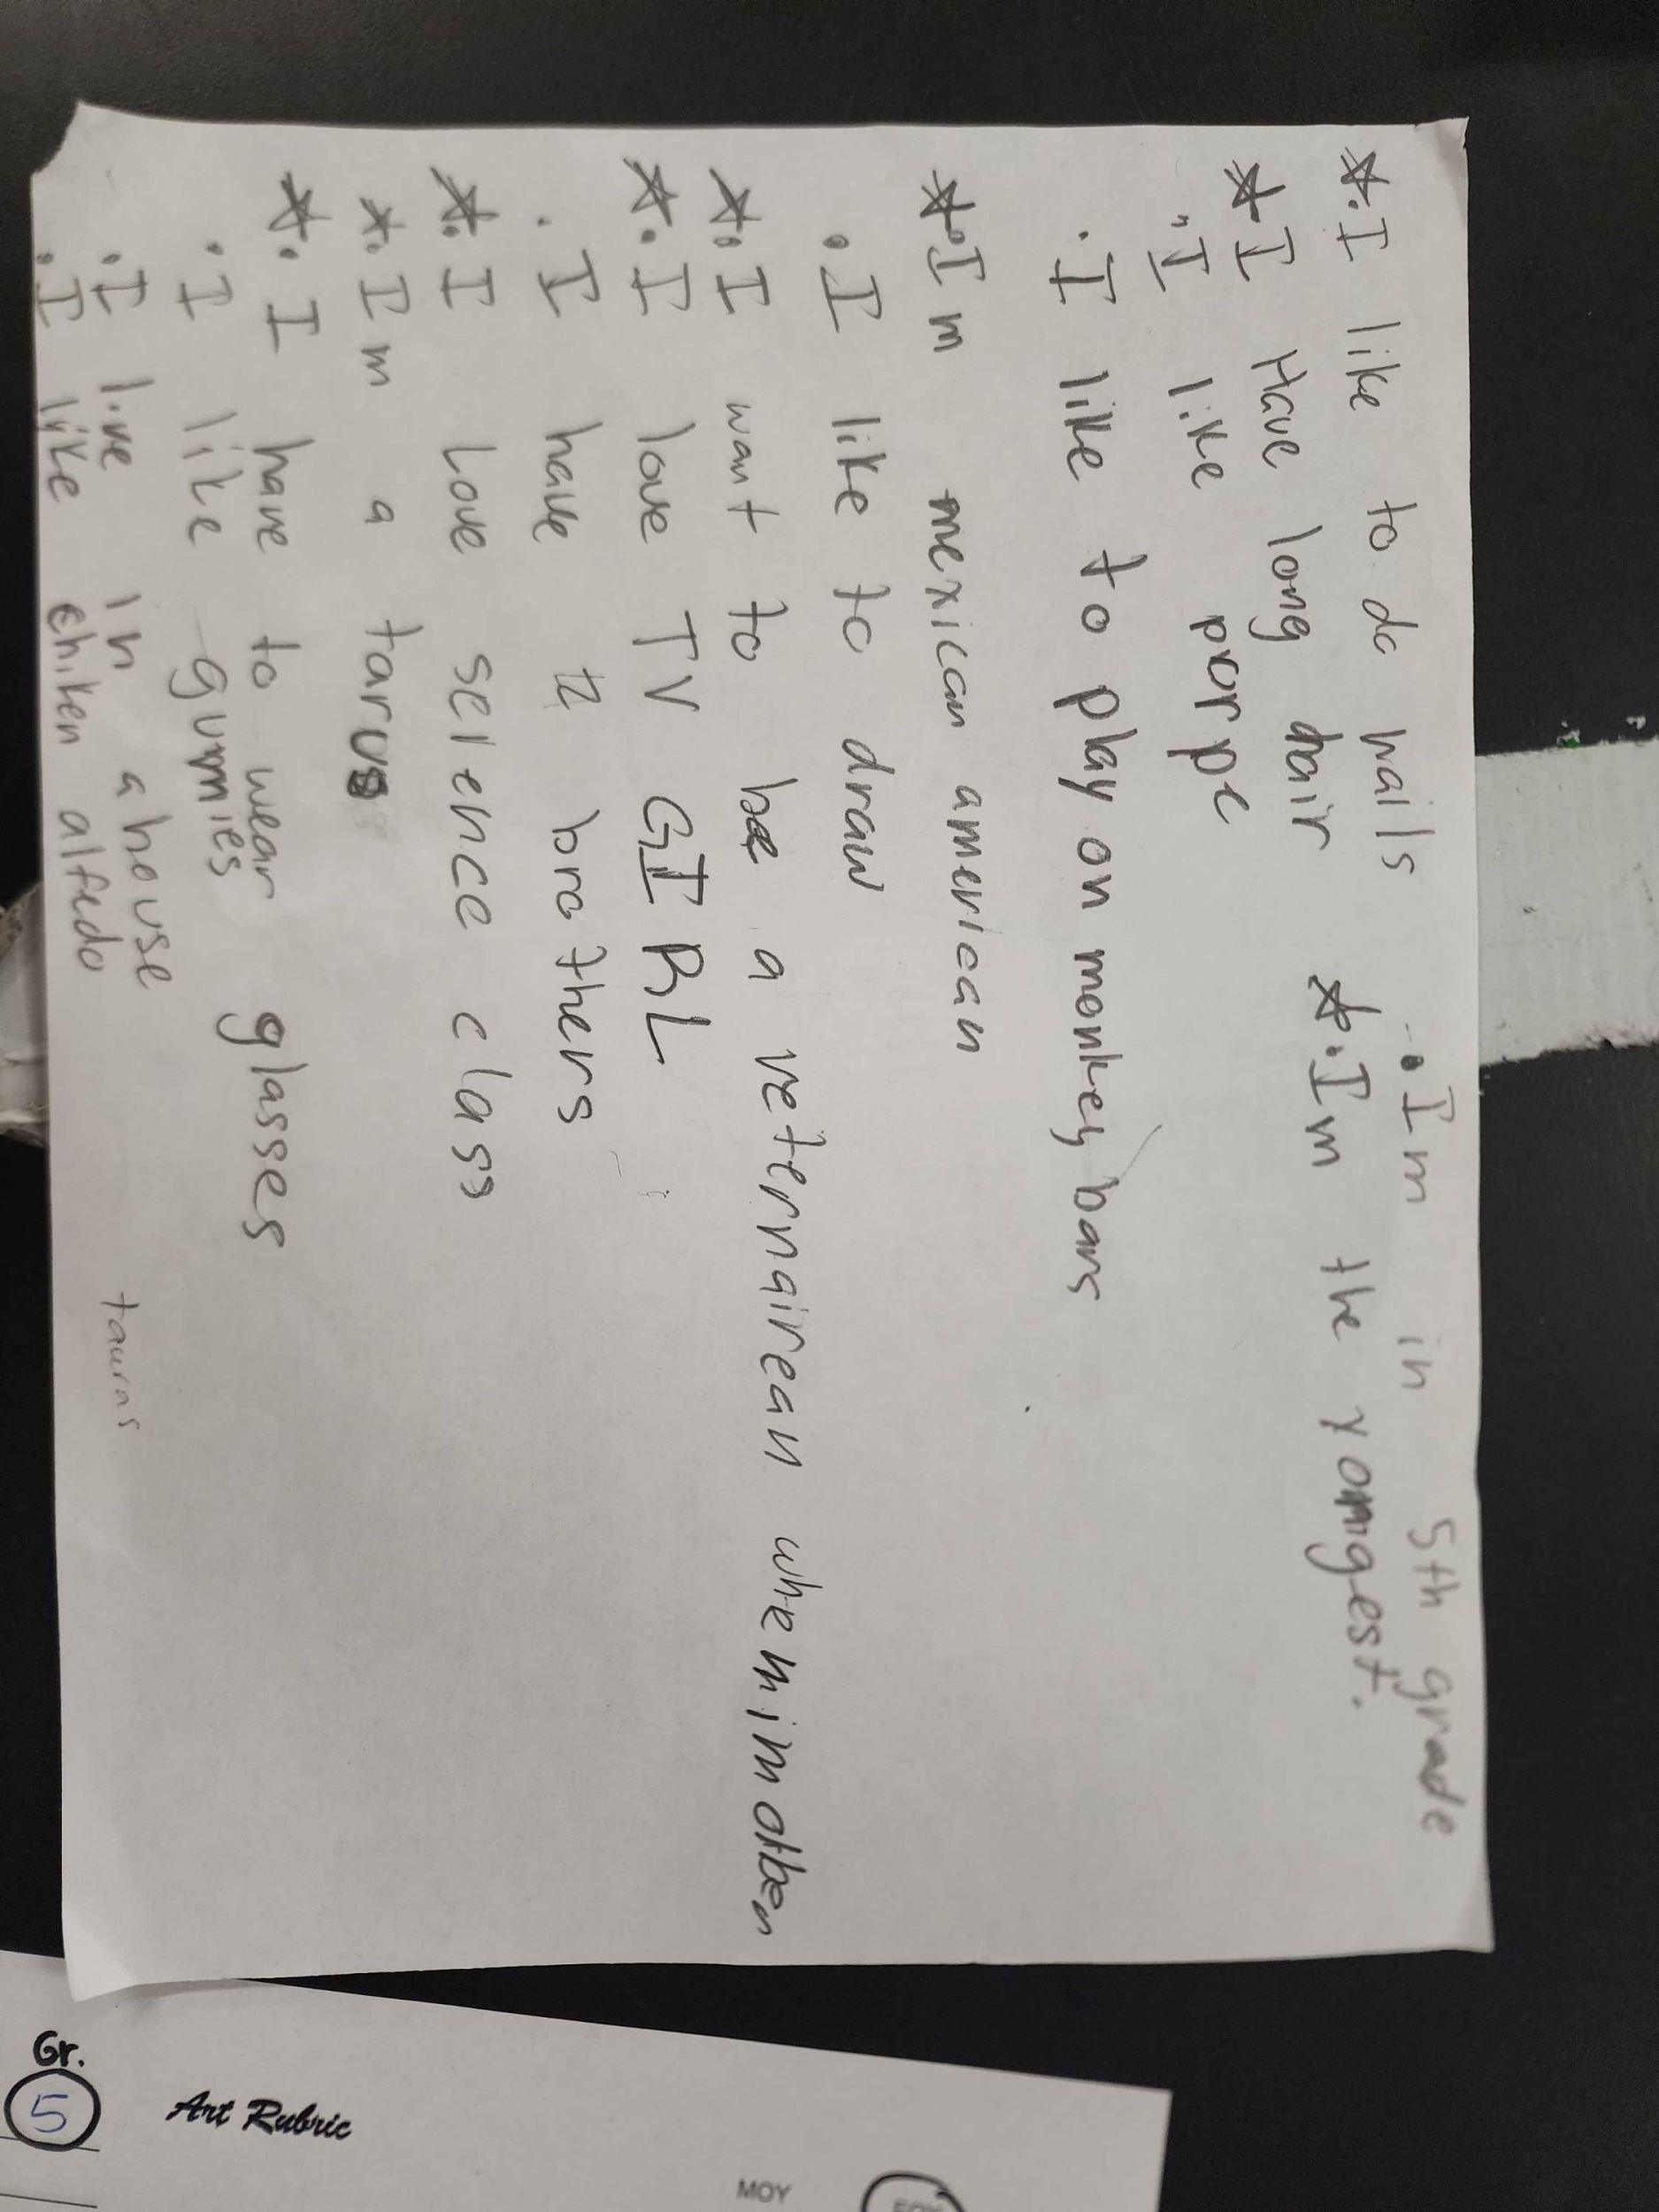 .Im in 5th grade
*.I like to do nails
*.Im the yomgest.
*I Have long hair
.I like porpe
.I like to play on monkey bars
*.Im mexican american
.I like to draw
*.I want to be a veternairean when im older
*.I love TV GIRL
.I have 2 brothers
*.I Love seience class
*.Im a tarus
*.I have to wear glasses
.I like gummies
.I live in a house
.I like chiken alfedo
taurus
Gr.
5
Art Rubric
MOY
EOY